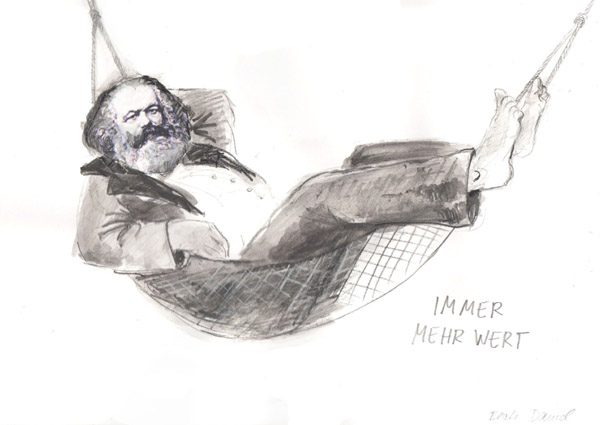 IMMER
MEHR WERT